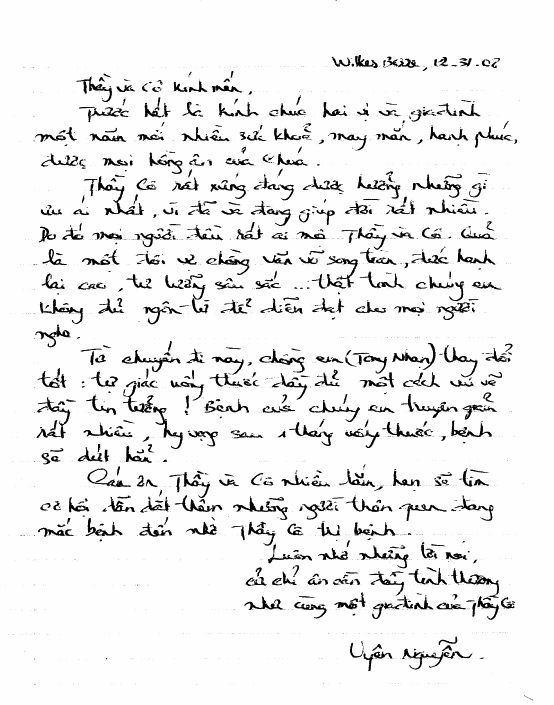 Wilkes Barre, 12-31-02
Thầy và Cô kính mến,
Trước hết là kính chúc hai vị và gia đình
một năm mới nhiều sức khoẻ, may mắn, hạnh phúc,
được mọi hồng ân của Chúa.
Thầy Cô rất xứng đáng được hưởng những gì
ưu ái nhất, vì đã và đang giúp đời rất nhiều.
Do đó mọi người đều rất ái mộ Thầy và Cô. Quả
là một đôi vợ chồng văn võ song toàn, đức hạnh
lại cao, tư tưởng sâu sắc ... thật tình chúng em
không đủ ngôn từ để diễn đạt cho mọi người
nghe.
Từ chuyến đi này, chồng em (Tony Nhan) thay đổi
tốt : tự giác uống thuốc đầy đủ một cách vui vẻ
đầy tin tưởng ! Bệnh của chúng em thuyên giảm
rất nhiều, hy vọng sau 1 tháng uống thuốc, bệnh
sẽ dứt hẳn.
Cám ơn Thầy và Cô nhiều lắm, hẹn sẽ tìm
cơ hội dẫn dắt thêm những người thân quen đang
mắc bệnh đến nhờ Thầy Cô trị bệnh.
Luôn nhớ những lời nói,
cử chỉ ân cần đầy tình thương
như cùng một gia đình của Thầy Cô
Uyên Nguyễn.